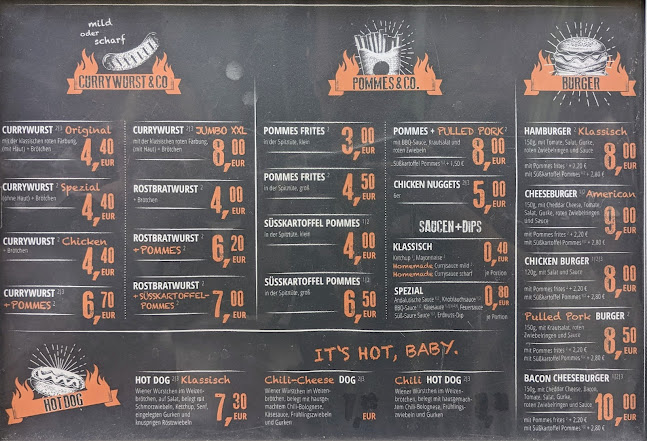 mild
oder
scharf
CURRYWURST & CO
CURRYWURST 2|3 Original
mit der klassischen roten Färbung,
(mit Haut) + Brötchen
4,40 EUR
CURRYWURST 2 Spezial
(ohne Haut) + Brötchen
4,40 EUR
CURRYWURST 2 Chicken
+ Brötchen
4,40 EUR
CURRYWURST 2|3
+ POMMES 2
6,70 EUR
CURRYWURST 2|3 JUMBO XXL
mit der klassischen roten Färbung,
(mit Haut) + Brötchen
8,00 EUR
ROSTBRATWURST 2
+ Brötchen
4,00 EUR
ROSTBRATWURST 2
+ POMMES 2
6,20 EUR
ROSTBRATWURST 2
+ SÜSSKARTOFFEL-
POMMES 2
7,00 EUR
POMMES & CO.
POMMES FRITES 2
in der Spitztüte, klein
3,00 EUR
POMMES FRITES 2
in der Spitztüte, groß
4,50 EUR
SÜSSKARTOFFEL POMMES 1|2
in der Spitztüte, klein
4,00 EUR
SÜSSKARTOFFEL POMMES 1|2
in der Spitztüte, groß
6,50 EUR
POMMES + PULLED PORK 2
mit BBQ-Sauce, Krautsalat und
roten Zwiebeln
Süßkartoffel Pommes + 1,50 €
8,00 EUR
CHICKEN NUGGETS 2|3
6er
5,00 EUR
SAUCEN + DIPS
KLASSISCH
Ketchup, Mayonnaise
Homemade Currysauce mild
Homemade Currysauce scharf
0,40 EUR
je Portion
SPEZIAL
Andalusische Sauce, Knoblauchsauce
BBQ-Sauce, Feuersauce
Süß-Saure Sauce, Erdnuss-Dip
0,80 EUR
je Portion
BURGER
HAMBURGER Klassisch
150g, mit Tomate, Salat, Gurke,
roten Zwiebelringen und Sauce
mit Pommes Frites + 2,20 €
mit Süßkartoffel Pommes + 2,80 €
8,00 EUR
CHEESEBURGER American
150g, mit Cheddar Cheese, Tomate,
Salat, Gurke, roten Zwiebelringen
und Sauce
mit Pommes Frites + 2,20 €
mit Süßkartoffel Pommes + 2,80 €
9,00 EUR
CHICKEN BURGER 1|2|3
120g, mit Salat und Sauce
mit Pommes Frites + 2,20 €
mit Süßkartoffel Pommes + 2,80 €
8,00 EUR
Pulled Pork BURGER 2
150g, mit Krautsalat, roten
Zwiebelringen und Sauce
mit Pommes Frites + 2,20 €
mit Süßkartoffel Pommes + 2,80 €
8,50 EUR
BACON CHEESEBURGER 1|2|3
150g, mit Cheddar Cheese, Bacon,
Tomate, Salat, Gurke,
roten Zwiebelringen und Sauce
mit Pommes Frites + 2,20 €
mit Süßkartoffel Pommes + 2,80 €
10,00 EUR
IT'S HOT, BABY.
HOT DOG
HOT DOG 2|3 Klassisch
Wiener Würstchen im Weizen-
brötchen, auf Salat, belegt mit
Schmorzwiebeln, Ketchup, Senf,
eingelegten Gurken und
knusprigen Röstzwiebeln
7,30 EUR
Chili-Cheese DOG 2|3
Wiener Würstchen im Weizen-
brötchen, belegt mit haus-
gemachtem Chili-Bolognese,
Käsesauce, Frühlingszwiebeln
und Gurken
EUR
Chili HOT DOG 2|3
Wiener Würstchen im Weizen-
brötchen, belegt mit hausgemach-
tem Chili-Bolognese, Frühlings-
zwiebeln und Gurken
EUR